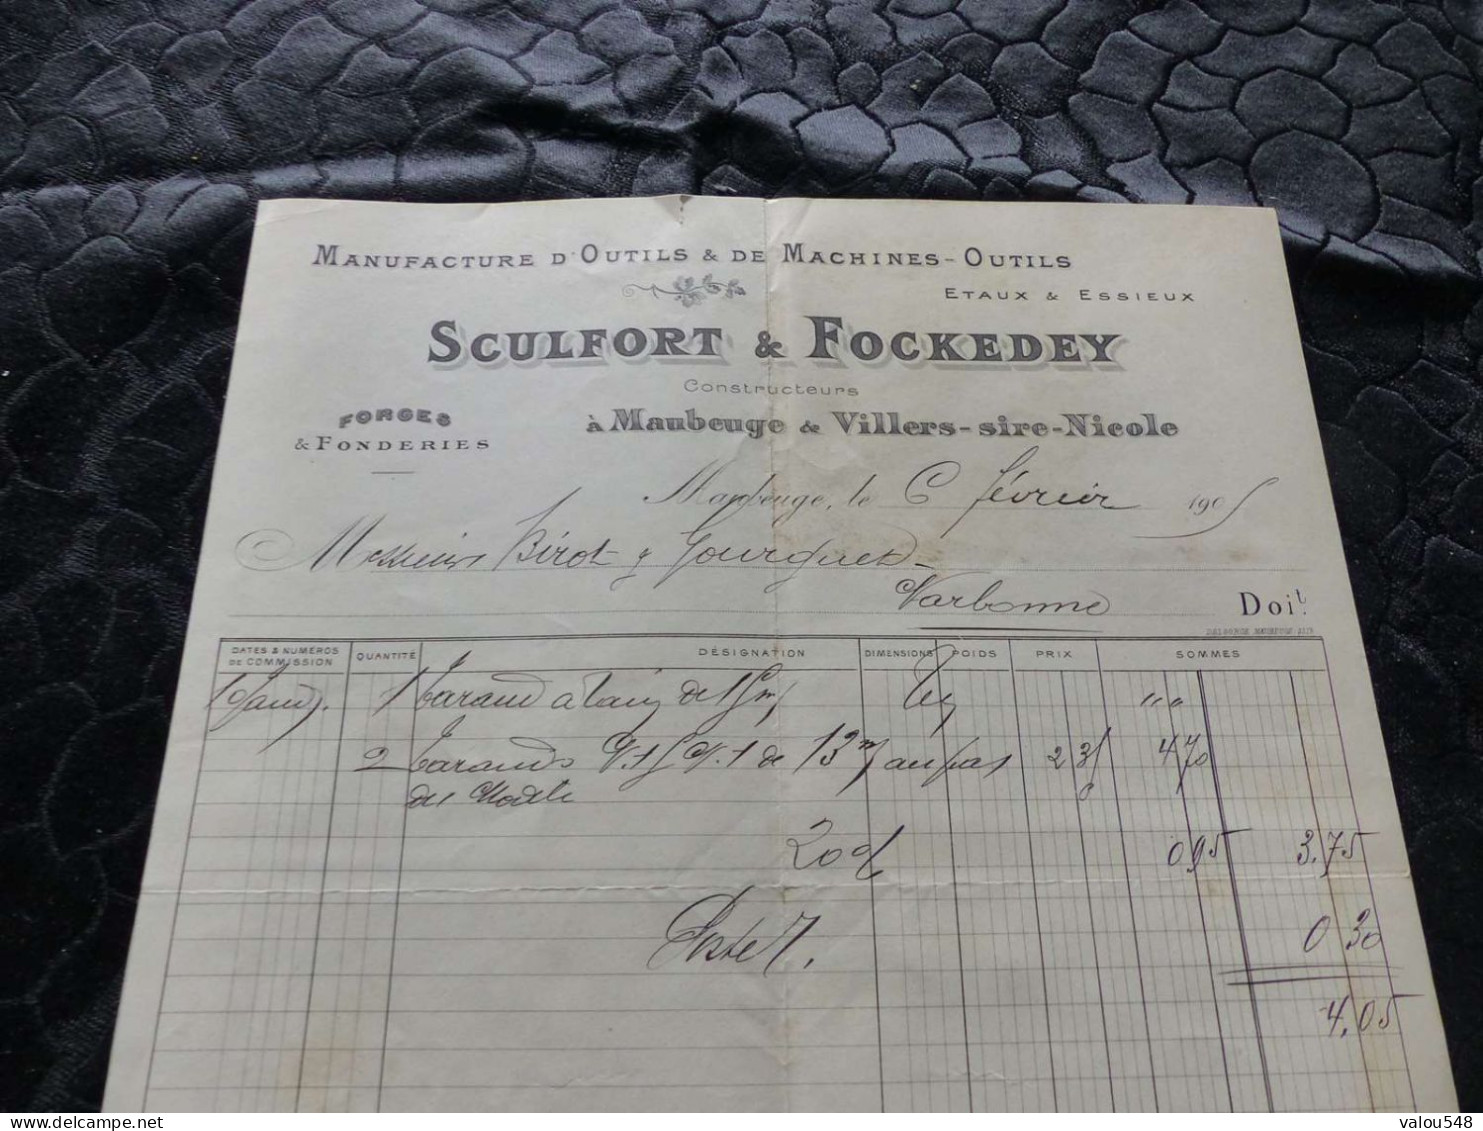 MANUFACTURE D'OUTILS & DE MACHINES-OUTILS
ETAUX & ESSIEUX
SCULFORT & FOCKEDEY
Constructeurs
FORGES
& FONDERIES
à Maubeuge & Villers-sire-Nicole
Maubeuge, le 6 février 1905
Messieurs Birot & Gourguet
Narbonne Doit
DATES & NUMÉROS DE COMMISSION QUANTITÉ DÉSIGNATION DIMENSIONS POIDS PRIX SOMMES
1 taraud à main de
2 tarauds de 13 m/ au pas 2 35 4 70
du modèle
20 % 0 95 3.75
Poste 7. 0 30
4,05
valou548